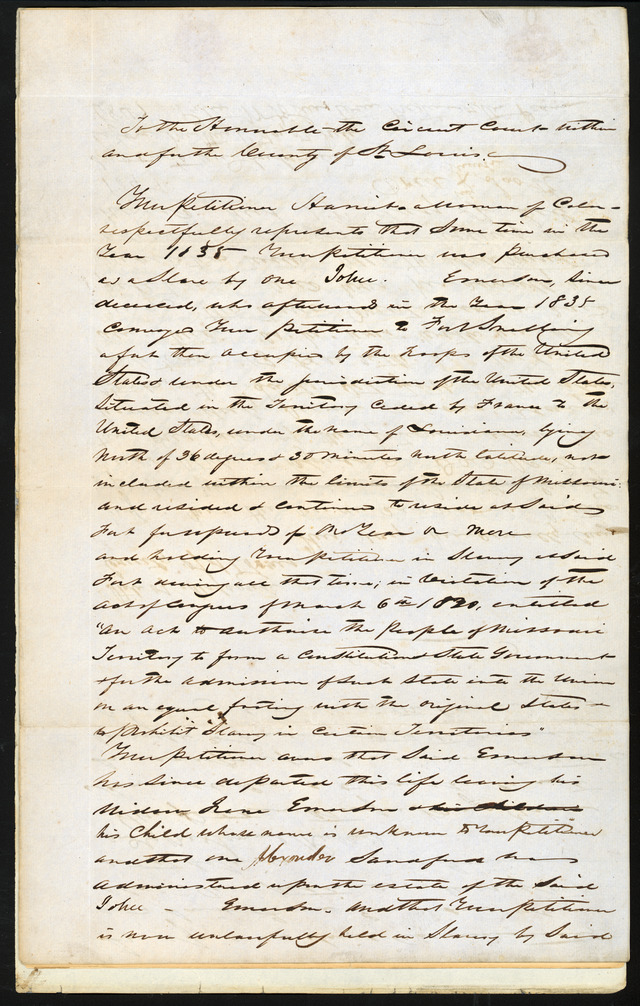 To the Honorable the Circuit Court within
and for the County of St. Louis.
Your Petitioner Harriet a woman of Color
respectfully represents that some time in the
Year 1835 Your petitioner was purchased
as a Slave by one John Emerson, since
deceased, who afterwards in the Year 1835
conveyed Your petitioner to Fort Snelling
a fort then occupied by the troops of the United
States & under the jurisdiction of the United States,
Situated in the Territory Ceded by France to the
United States, under the name of Louisiana, lying
North of 36 degrees & 30 minutes north latitude, not
included within the limits of the State of Missouri
and resided & continued to reside at said
Fort for upwards of One Year or more
and holding Your petitioner in Slavery at said
Fort during all that time; in violation of the
act of Congress of March 6th 1820, entitled
"an act to authorize the People of Missouri
Territory to form a Constitution & State Government
& for the admission of such State into the Union
on an equal footing with the original States &
to prohibit Slavery in Certain Territories"
Your petitioner avers that said Emerson
has since departed this life leaving his
Widow Irene Emerson &
his Child whose name is unknown to Your petitioner
and that one Alexander Sandford has
administered upon the estate of the said
John Emerson. and that Your petitioner
is now unlawfully held in Slavery by said